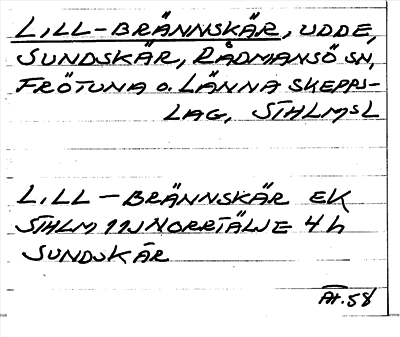 LILL-BRÄNNSKÄR, UDDE,
SUNDSKÄR, RÅDMANSÖ SN,
FRÖTUNA o. LÄNNA SKEPPS-
LAG, STHLMS L
LILL-BRÄNNSKÄR EK
STHLM 11J NORRTÄLJE 4 h
SUNDSKÄR
At. 58